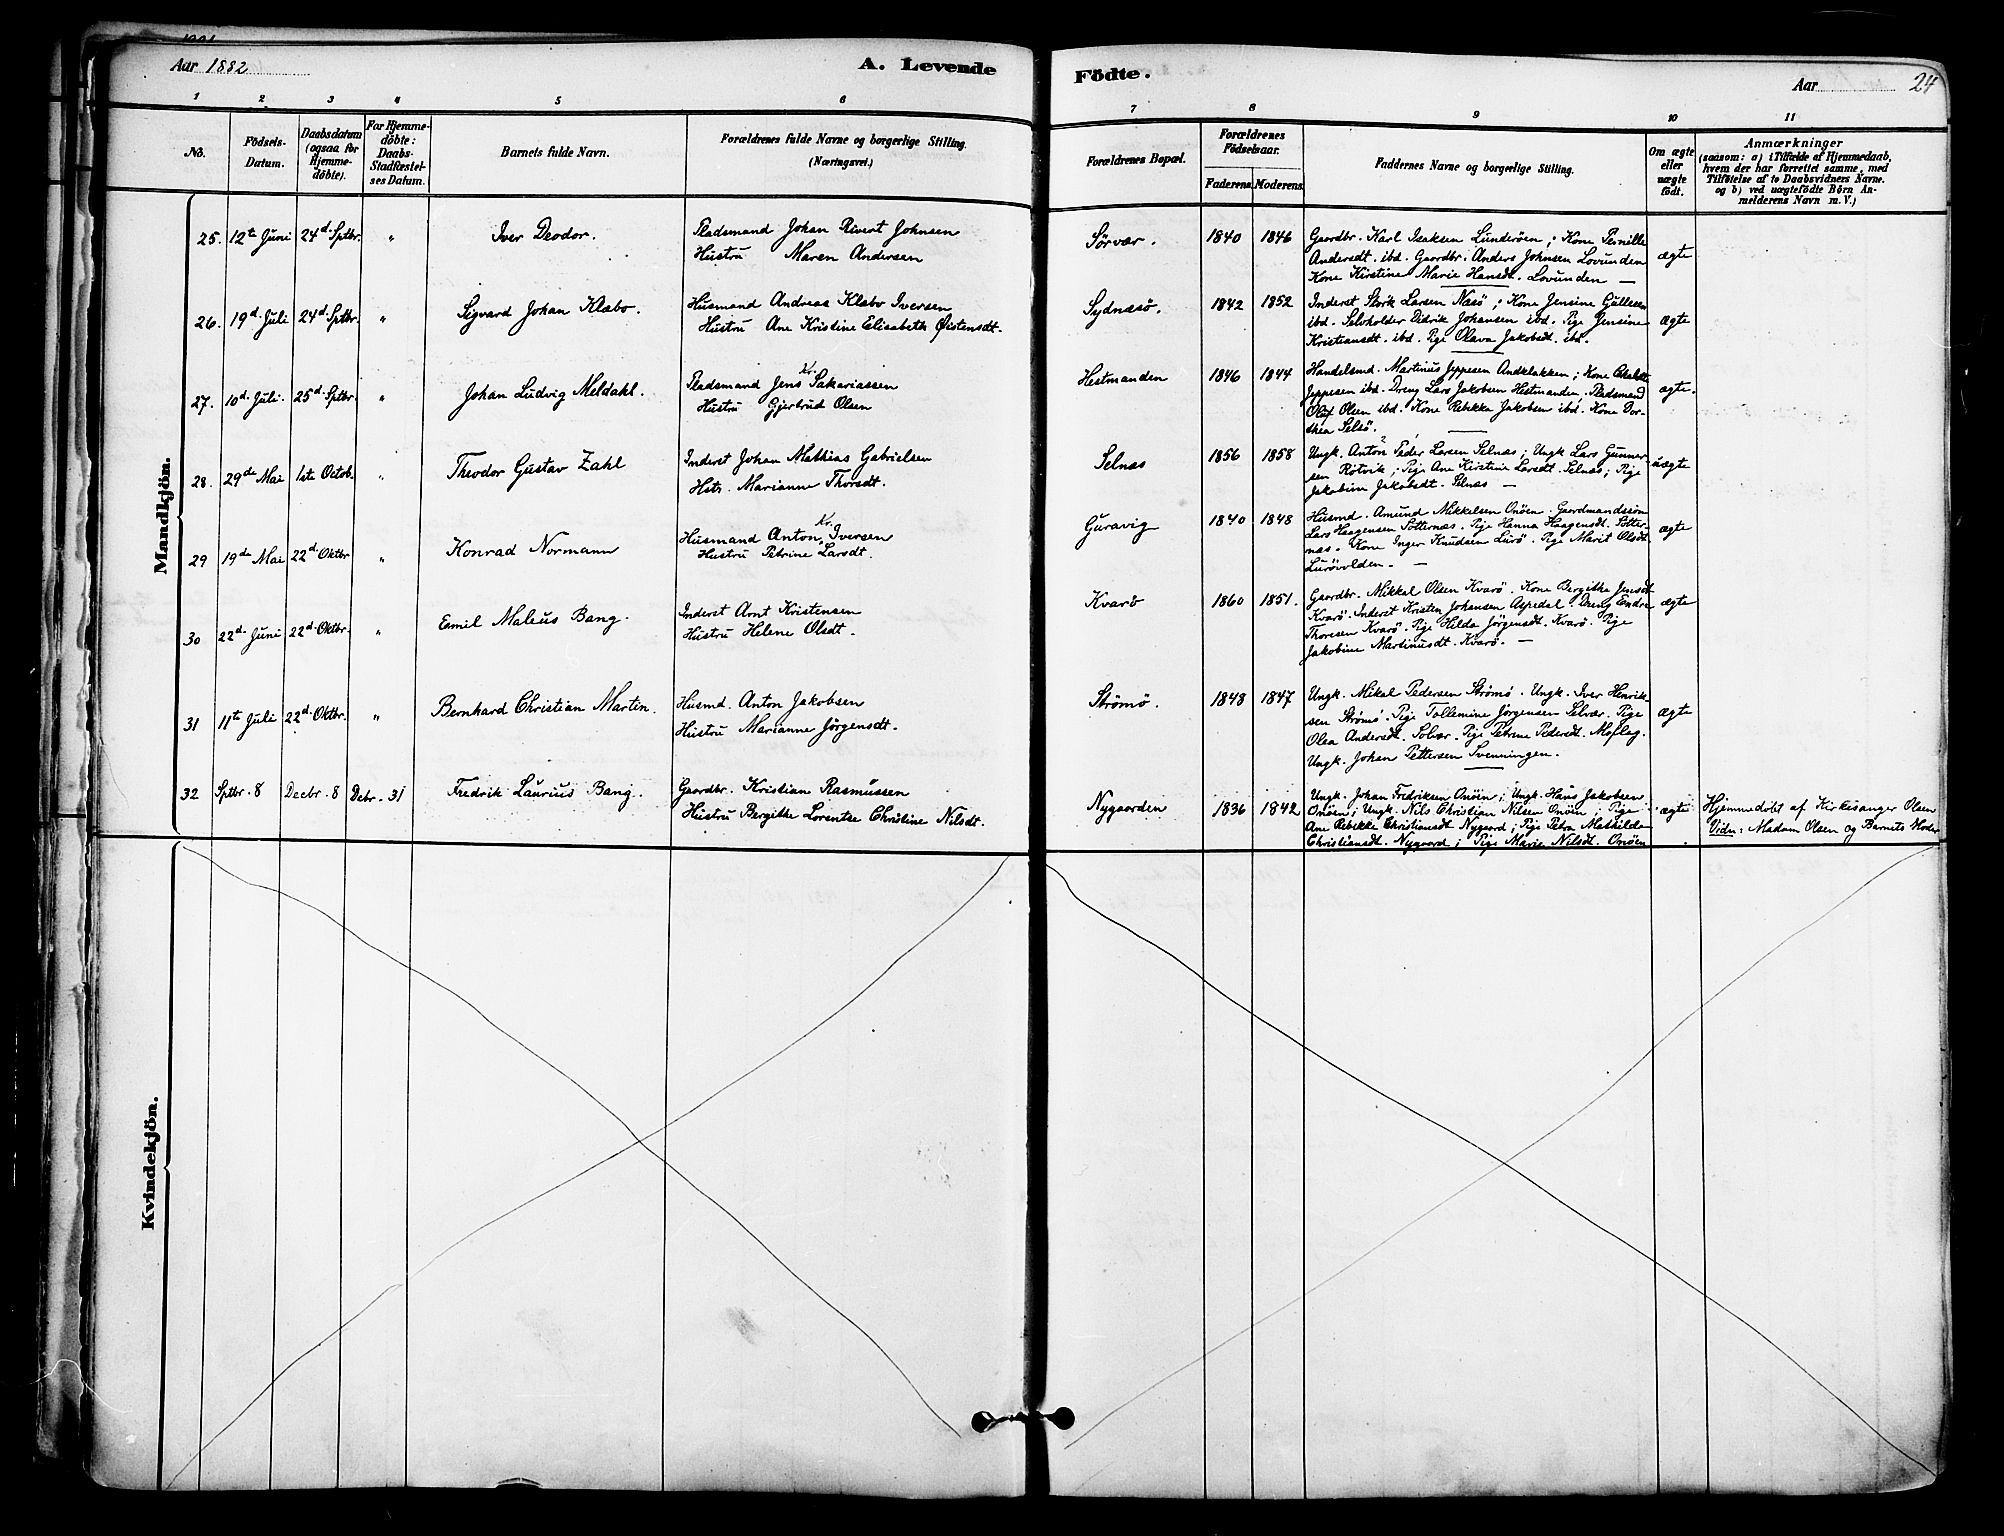 Aar 1882
A. Levende
Födte.
Aar
24
1
2
3
4
5
6
7
8
9
10
11
No.
Födsels-
Datum.
Daabsdatum
(ogsaa for
Hjemme-
döbte).
For Hjemme-
döbte:
Daabs-
Stadfæstel-
ses Datum.
Barnets fulde Navn.
Forældrenes fulde Navne og borgerlige Stilling.
(Næringsvei.)
Forældrenes Bopæl.
Forældrenes
Födselsaar.
Faderens.
Moderens.
Faddernes Navne og borgerlige Stilling.
Om ægte
eller
uægte
födt.
Anmærkninger
(saasom: a) i Tilfælde af Hjemmedaab,
hvem der har forrettet samme, med
Tilföielse af to Daabsvidners Navne.
og b) ved uægtefödte Börn An-
melderens Navn m. V.)
Mandkjön.
25. 12te Juni 24d. Sptbr. " Iver Deodor. Pladsmand Johan Rivert Johnsen
Hustru Maren Andersen
Sörvær. 1840 1846 ægte
Gaardbr. Karl Isaksen Lunderöen; Kone Pernille
Andersdt. ibd. Gaardbr. Anders Johnsen Lovunden
Kone Kirstine Marie Hansdt. Lovunden —
26. 19d. Juli 24d. Sptbr. " Sigvard Johan Klæbo. Husmand Andreas Klæbo Iversen
Hustru Ane Kristine Elisabeth Östensdt.
Sydnæsö. 1842 1852 ægte
Inderst Storik Larsen Næsö; Kone Jensine Gullesen
ibd. Selvholder Didrik Johansen ibd. Pige Jensine
Kristiansdt. ibd. Pige Olava Jakobsdt. ibd.
27. 10d. Juli. 25d. Sptbr. " Johan Ludvig Meldahl. Pladsmand Jens Kr. Sakariassen
Hustru Gjertrud Olsen
Hestmanden 1846 1844 ægte.
Handelsmd. Martinus Jeppesen Andklakken; Kone
Jeppesen ibd. Dreng Lars Jakobsen Hestmanden. Pladsmand
Oluf Olsen ibd. Kone Rebekka Jakobsen ibd. Kone Dor-
thea Selsö.
28. 29de Mai 1ste Octob. " Theodor Gustav Zahl Inderst Johan Mathias Gabrielsen
Hstr. Marianne Thorsdt.
Selnæs 1856 1858 uægte
Ungk. Anton Peder Larsen Selnæs; Ungk Lars Gunner-
sen Rötvik; Pige Ane Kirstina Larsdt. Selnæs; Pige
Jakobine Jakobsdt. Selnæs —
29 19de Mai 22d. Oktbr " Konrad Normann Husmand Anton Kr. Iversen
Hustru Petrine Larsdt.
Guravig 1840 1848 ægte
Husmd. Amund Mikkelsen Onöen. Gaardmandssön
Lars Haagensen Sötternæs. Pige Hanna Haagensdt. Sötter-
næs. Kone Inger Knudsen Lurö. Pige Marit Olsdt
Lurövolden. —
30 22d. Juni 22d. Oktbr. " Emil Maleus Bang. Inderst Arnt Kristensen
Hustru Helene Olsdt.
Kvarö 1860 1851. ægte
Gaardbr. Mikkel Olsen Kvarö. Kone Bergithe Jensdt
Kvarö. Inderst Kristen Johansen Aspedal. Dreng Endre
Thoresen Kvarö. Pige Hilda Jörgensdt. Kvarö. Pige
Jakobine Martinusdt. Kvarö. —
31 11te Juli 22d. Oktbr. " Bernhard Christian Martin. Husmd. Anton Jakobsen
Hustru Marianne Jörgensdt.
Strömö. 1848 1847 ægte
Ungk. Mikal Pedersen Strömö. Ungk. Iver Henrik-
sen Strömö. Pige Tollemine Jörgensen Selvær. Pige
Olea Andersdt. Solvær. Pige Petrine Pedersdt. Moflag.
Ungk. Johan Pettersen Svenningen.
32 Sptbr. 8 Decbr. 8 Debr. 31 Fredrik Laurius Bang. Gaardbr. Kristian Rasmussen
Hustru Bergitte Lorentze Christine Nilsdt.
Nygaarden 1836 1842 ægte
Ungk. Johan Fredriksen Onöen; Ungk. Hans Jakobsen
Onöen; Ungk. Nils Christian Nilsen Onöen; Pige
Ane Rebekke Christiansdt Nygaard; Pige Petra Mathilde
Christiansdt. Nygaard; Pige Marie Nilsdt. Onöen
Hjemmedöbt af Kirkesanger Olsen
Vidn: Madam Olsen og Barnets Moder
Kvindekjön.